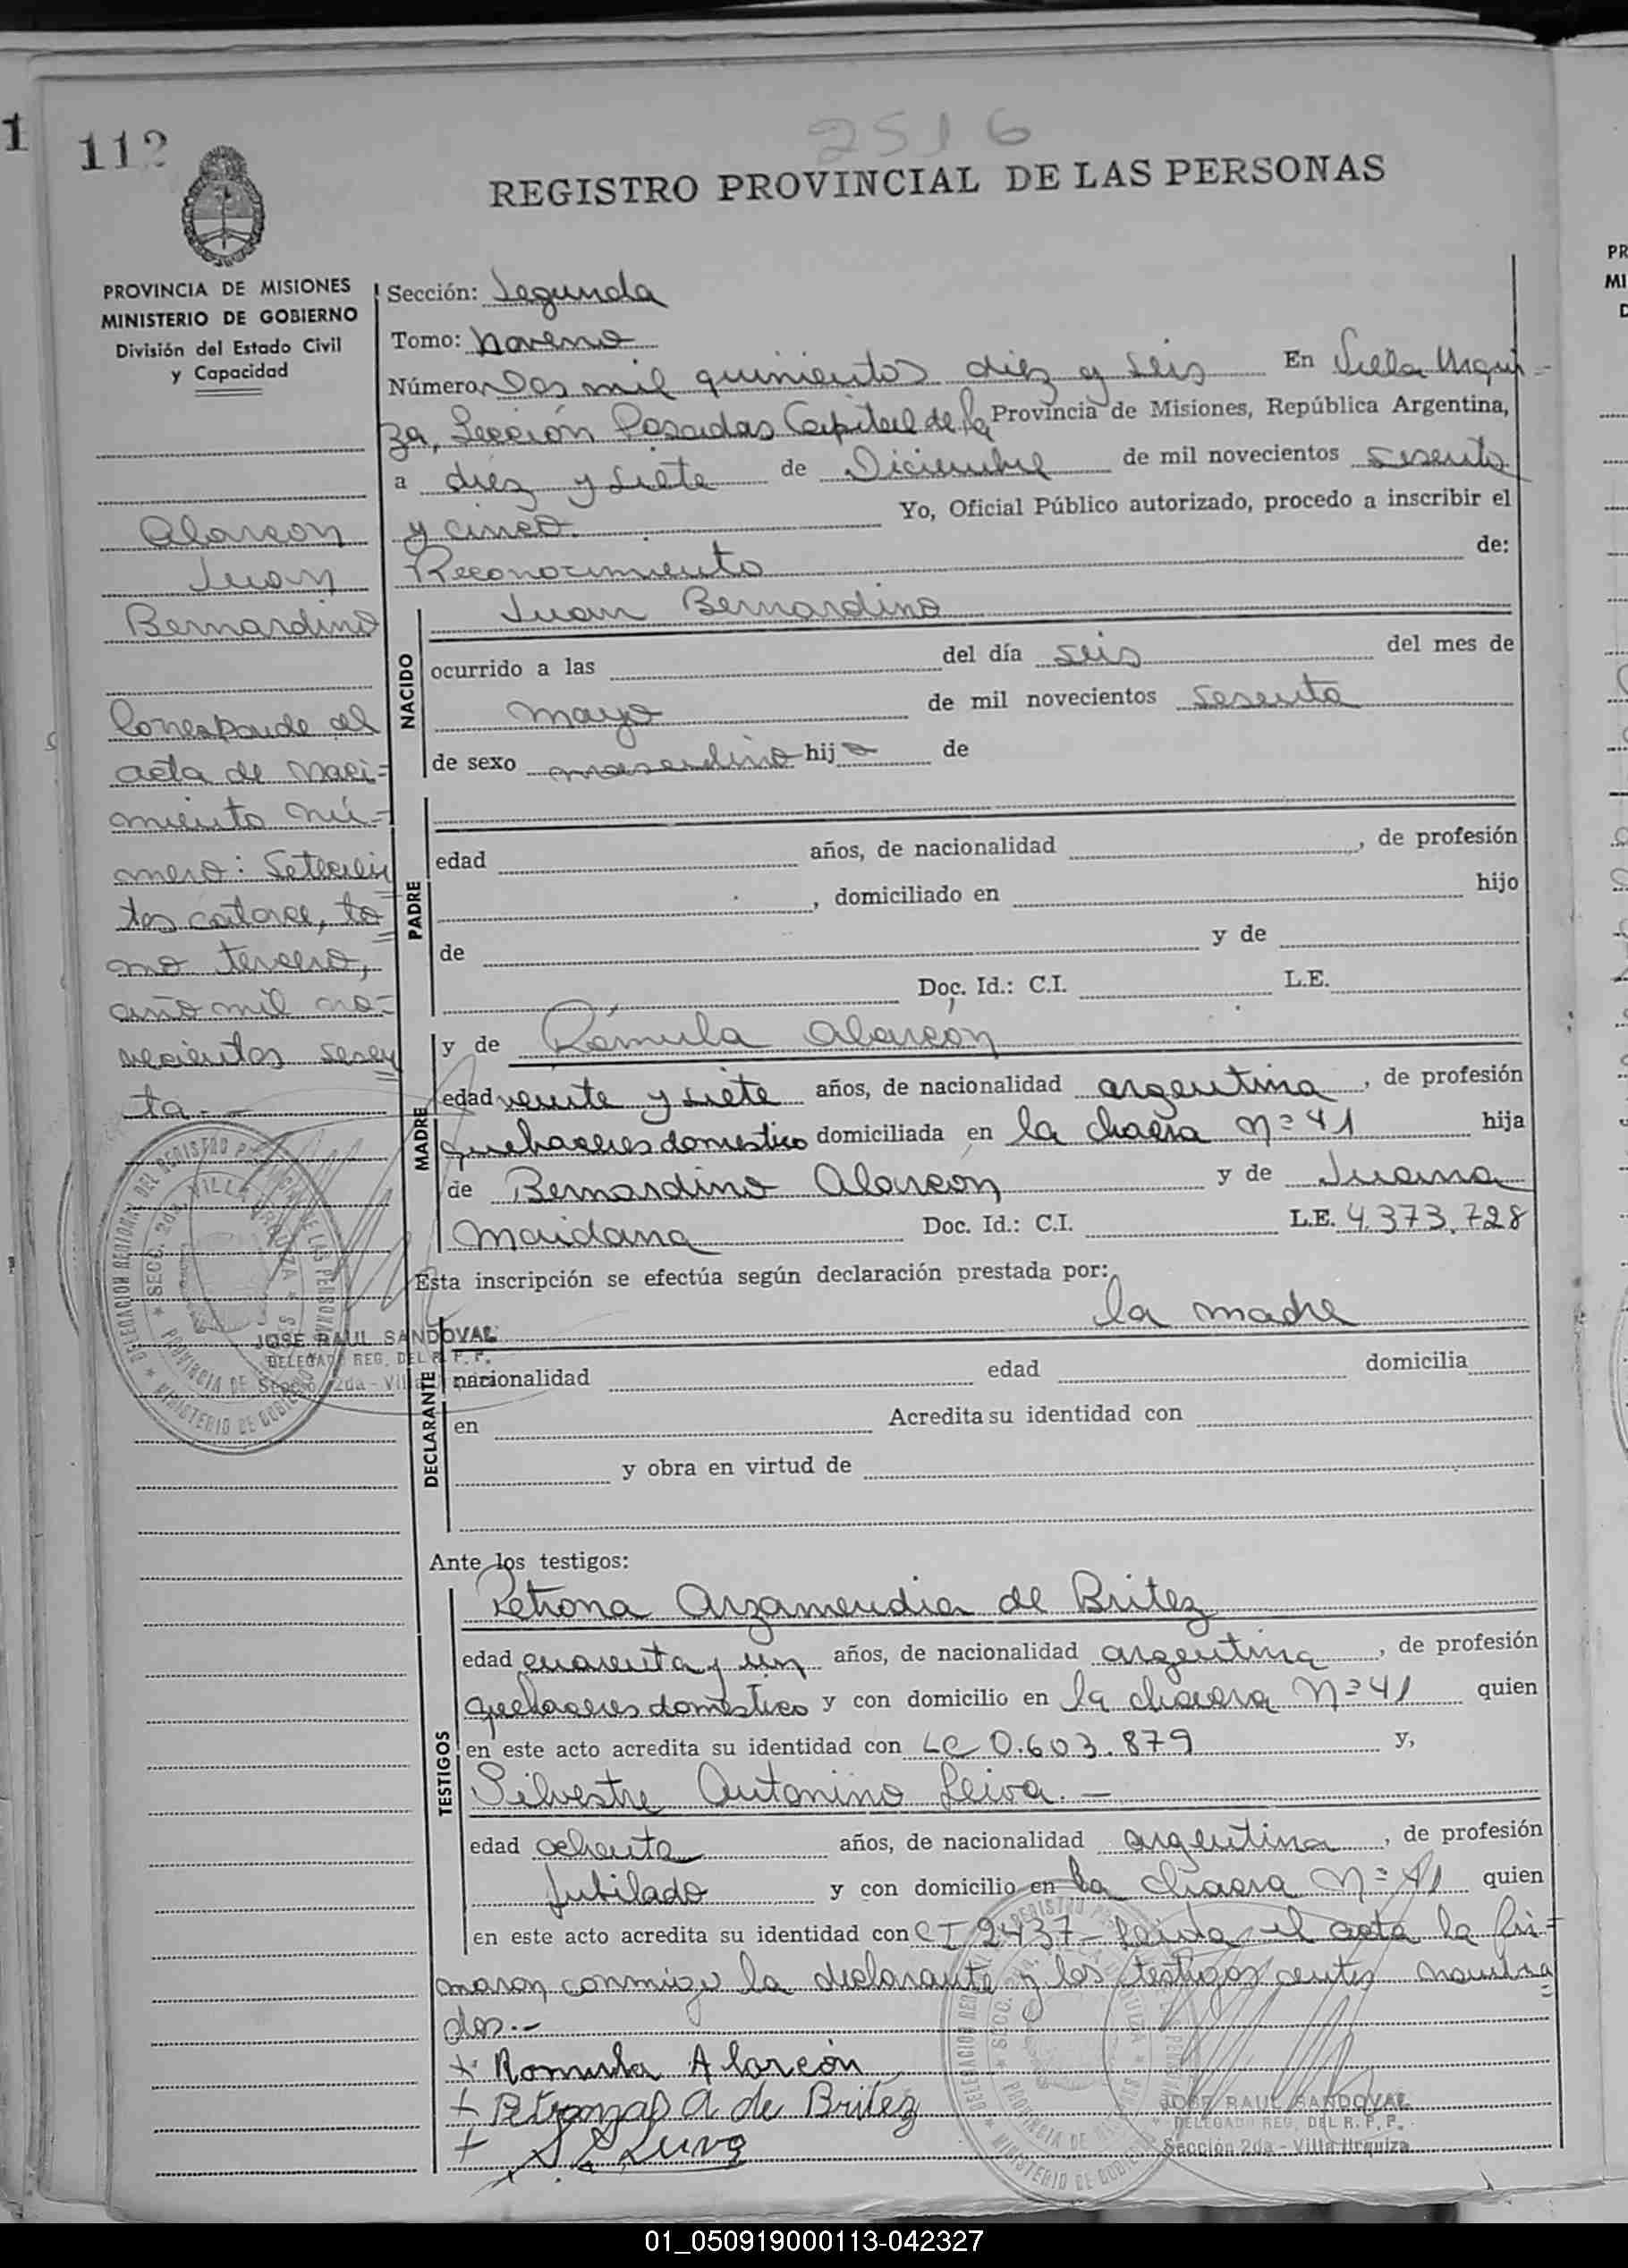 2516
1
112
REGISTRO PROVINCIAL DE LAS PERSONAS
PROVINCIA DE MISIONES
MINISTERIO DE GOBIERNO
División del Estado Civil
y Capacidad
Alarcon
Juan
Bernardino
Corresponde al
acta de naci=
miento nú=
mero: Setecien
tos catorce, to=
mo tercero,
año mil no=
vecientos sesen=
ta.-
JOSE RAUL SANDOVAL
DELEGADO REG. DEL R. P. P.
Sección 2da - Villa
Sección: Segunda
Tomo: Noveno
Número Dos mil quinientos diez y seis En Villa Urqui-
za, Sección Posadas Capital de la Provincia de Misiones, República Argentina,
a diez y siete de Diciembre de mil novecientos sesenta
y cinco. Yo, Oficial Público autorizado, procedo a inscribir el
Reconocimiento de:
NACIDO
Juan Bernardino
ocurrido a las del día seis del mes de
mayo de mil novecientos sesenta
de sexo masculino hijo de
PADRE
edad años, de nacionalidad , de profesión
, domiciliado en hijo
de y de
Doc. Id.: C.I. L.E.
MADRE
y de Rómula Alarcón
edad veinte y siete años, de nacionalidad argentina, de profesión
quehaceres domestico domiciliada en la chacra Nº 41 hija
de Bernardino Alarcón y de Juana
Maidana Doc. Id.: C.I. L.E. 4.373.728
Esta inscripción se efectúa según declaración prestada por:
la madre
DECLARANTE
nacionalidad edad domicilia
en Acredita su identidad con
y obra en virtud de
Ante los testigos:
TESTIGOS
Petrona Arzamendia de Britez
edad cuarenta y un años, de nacionalidad argentina, de profesión
quehaceres doméstico y con domicilio en la chacra Nº 41 quien
en este acto acredita su identidad con LC 0.603.879 y,
Silvestre Antonino Leiva.-
edad ochenta años, de nacionalidad argentina, de profesión
Jubilado y con domicilio en la chacra Nº 41 quien
en este acto acredita su identidad con CI 2437- Leida el acta la fir=
maron conmigo la declarante y los testigos antes nombra=
dos.-
+ Romula Alarcón
+ A de Britez
+ Leiva
JOSE RAUL SANDOVAL
DELEGADO REG. DEL R. P. P.
Sección 2da - Villa Urquiza
01_050919000113-042327